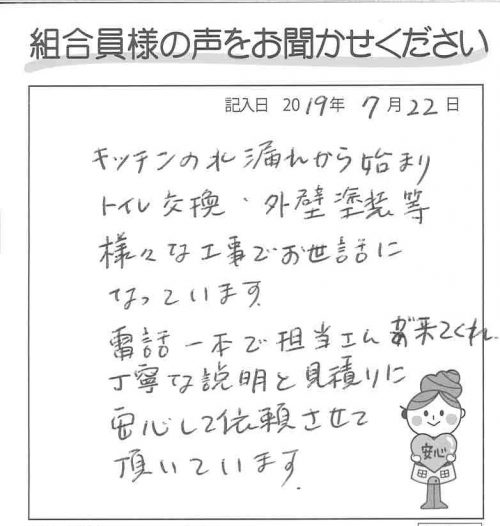 組合員様の声をお聞かせください
記入日 2019年 7月22日
キッチンの水漏れから始まり
トイレ交換・外壁塗装等
様々な工事でお世話に
なっています
電話一本で担当さんが来てくれ
丁寧な説明と見積りに
安心して依頼させて
頂いています
安心